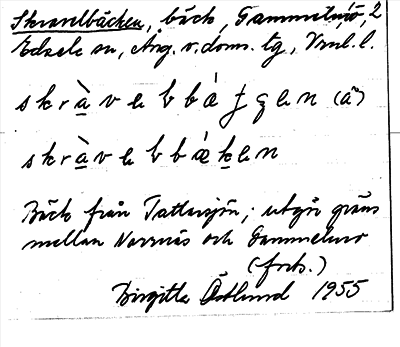 Skravelbäcken, bäck, Gammelmo, 2
Edsele sn, Ång. v. doms. tg, Vnl. l.
skràvebbáʄʓen (â)
skràvebbǽken
Bäck från Tattersjön; utgör gräns
mellan Norrnäs och Gammelmo
(forts.)
Birgitta Östlund 1955